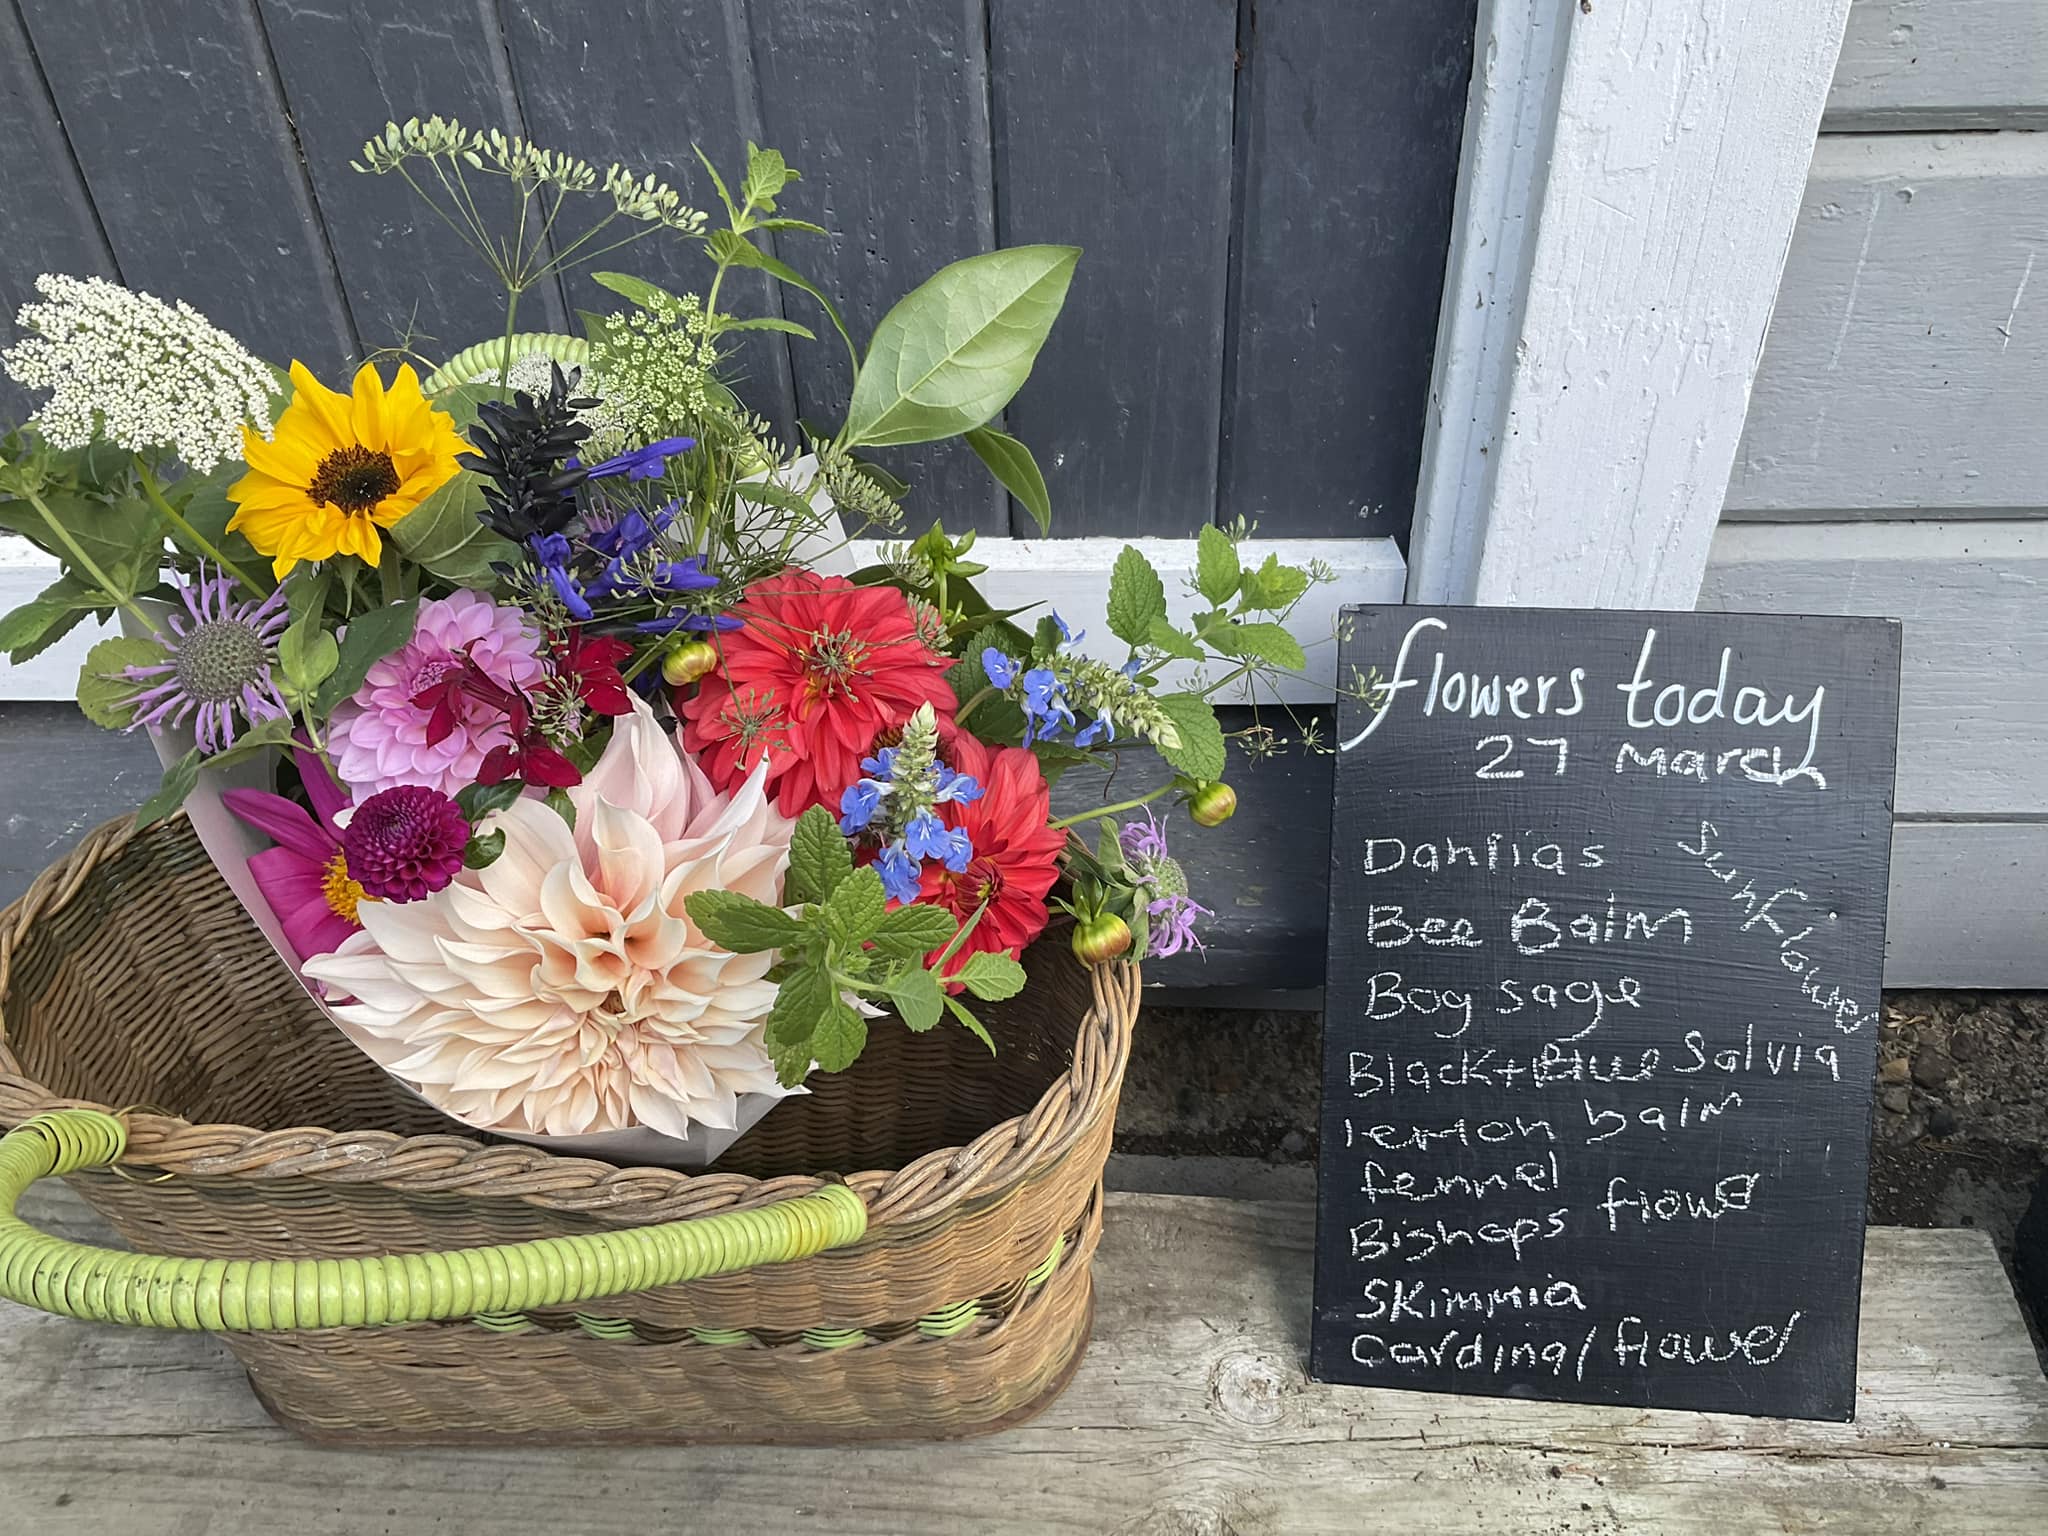 flowers today
27 March
Dahlias
Sunflower
Bee Balm
Bog sage
Black+Blue Salvia
lemon balm
fennel
Bishops flower
Skimmia
Cardinal flower